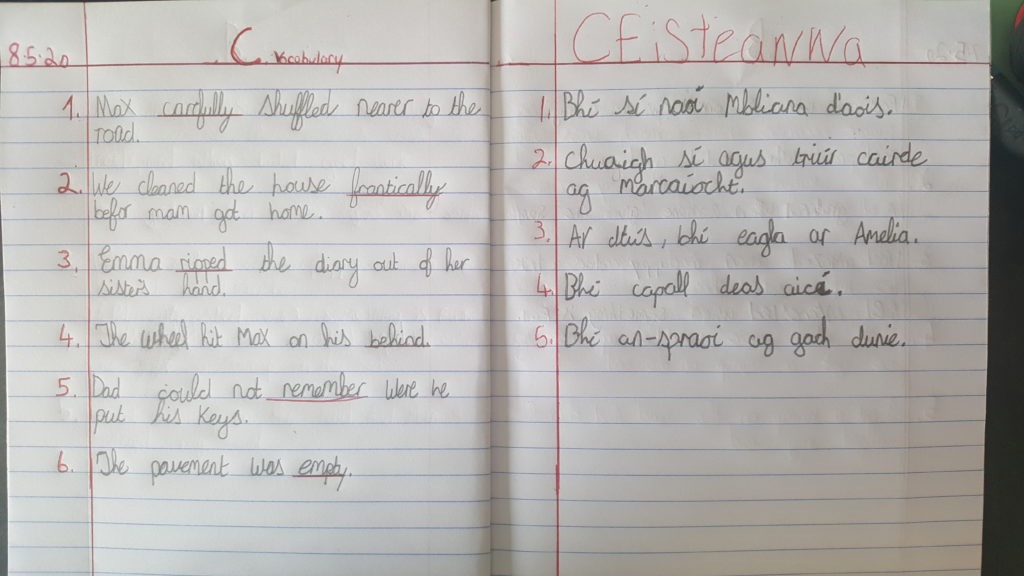 8.5.20
C. Vocabulary
1. Max carfully shuffled nearer to the
road.
2. We cleaned the house frantically
befor mam got home.
3. Emma ripped the diary out of her
sister's hand.
4. The wheel hit Max on his behind.
5. Dad could not remember were he
put his keys.
6. The pavement was empty.
CEisteanna
1. Bhí sí naoí mbliana d'aois.
2. Chuaigh sí agus triúr cairde
ag marcaíocht.
3. Ar dtús, bhí eagla ar Amelia.
4. Bhí capall deas aici.
5. Bhí an-spraoi ag gach dunie.